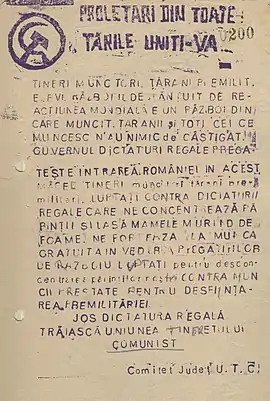 PROLETARI DIN TOATE
TĂRILE UNITI-VA
0200
TINERI MUNCTORI, ȚĂRANI PREMILIT.
ELEVI RĂZBOIUL DE
ACȚIUNEA MONDIALĂ E UN RĂZBOI DIN
CARE MUNCIT. ȚĂRANII și TOTI CEI CE
MUNCESC N'AU NIMIC de CĂSTIGAT
GUVERNUL DICTATURI REGALE PREGA
TEȘTE INTRAREA ROMÂNIEI IN ACEST
MĂCEL TINERI muncitori țărani pre
militari, LUPTATI CONTRA DICTATURII
REGALE CARE NE CONCENTREAZĂ PĂ
RINTII SI LASĂ MAMELE MURIND DE
FOAME. NE FORTEAZA LA MUNCA
GRATUITA IN VEDEREA PREGĂTIRILOR
DE RAZBOIU LUPTATI pentru descon
centrarea CONTRA MUN
CII PRESTATE PENTRU DESFIINTA-
REA PREMILITĂRIEI.
JOS DICTATURA REGALĂ
TRĂIASCĂ UNIUNEA TINERETULUI
COMUNIST
Comitet Județ U. T. C.